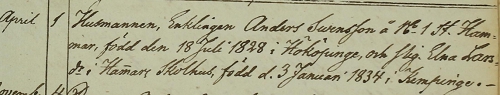 April 1 Husmannen, Enklingen Anders Svensson å No 1 St. Ham-
mar, född den 18 Juli 1828 i Hökösinge, och Pig. Elna Lars-
dr i Ham̄ars Skolhus, född d. 3 Januari 1834 i Kimpinge.